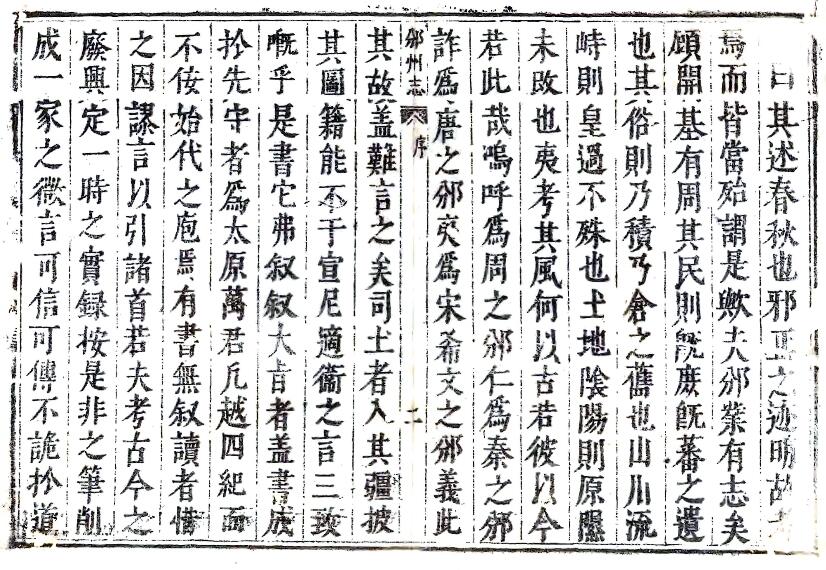 曰其述春秋也邪正之迹明故
焉而皆當殆謂是歟夫邠業有志矣
頋開基有周其民則旣庶旣蕃之遺
也其俗則乃積乃倉之舊也山川流
峙則皇過不殊也土地陰陽則原隰
未改也夷考其風何以古若彼以今
若此哉嗚呼爲周之邠仁爲秦之邠
詐爲唐之邠奕爲宋希文之邠義此
邠州志 序 二
其故盖難言之矣司土者入其疆披
其圖籍能不于宣尼適衞之言三致
嘅乎是書它弗叙叙大㫖者盖書成
扵先守者爲太原萬君凡越四紀而
不佞始代之庖焉有書無叙讀者惜
之因謬言以引諸首若夫考古今之
廢興定一時之實録按是非之筆削
成一家之微言可信可傳不詭扵道